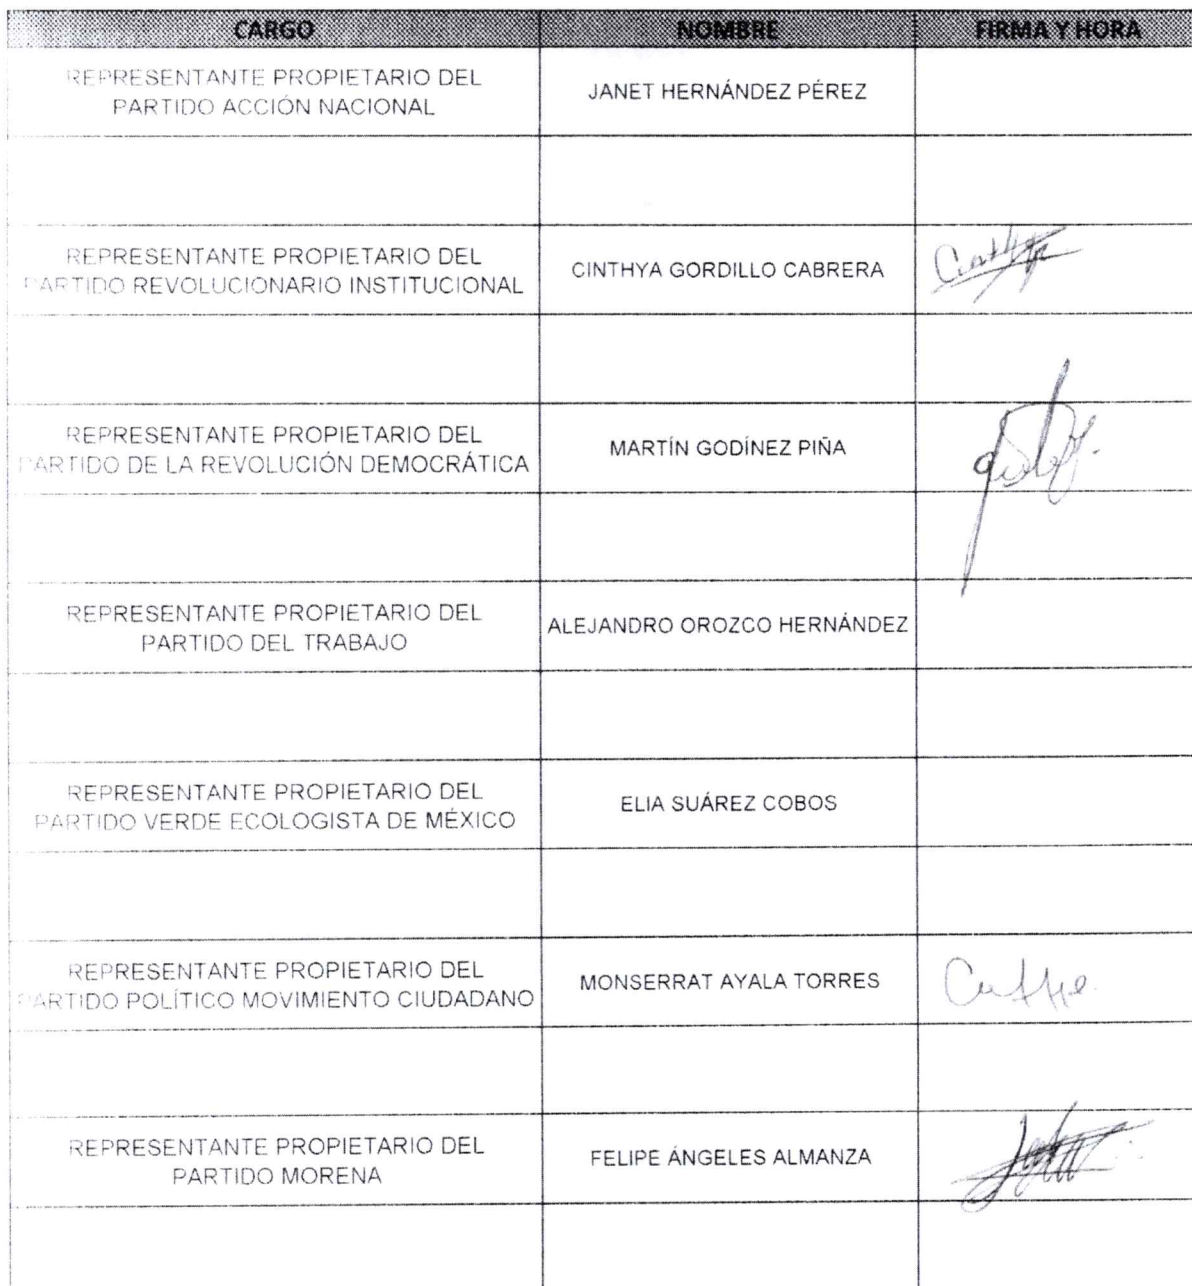 CARGO NOMBRE FIRMA Y HORA
REPRESENTANTE PROPIETARIO DEL
PARTIDO ACCIÓN NACIONAL
JANET HERNÁNDEZ PÉREZ
REPRESENTANTE PROPIETARIO DEL
PARTIDO REVOLUCIONARIO INSTITUCIONAL
CINTHYA GORDILLO CABRERA
REPRESENTANTE PROPIETARIO DEL
PARTIDO DE LA REVOLUCIÓN DEMOCRÁTICA
MARTÍN GODÍNEZ PIÑA
REPRESENTANTE PROPIETARIO DEL
PARTIDO DEL TRABAJO
ALEJANDRO OROZCO HERNÁNDEZ
REPRESENTANTE PROPIETARIO DEL
PARTIDO VERDE ECOLOGISTA DE MÉXICO
ELIA SUÁREZ COBOS
REPRESENTANTE PROPIETARIO DEL
PARTIDO POLÍTICO MOVIMIENTO CIUDADANO
MONSERRAT AYALA TORRES
REPRESENTANTE PROPIETARIO DEL
PARTIDO MORENA
FELIPE ÁNGELES ALMANZA